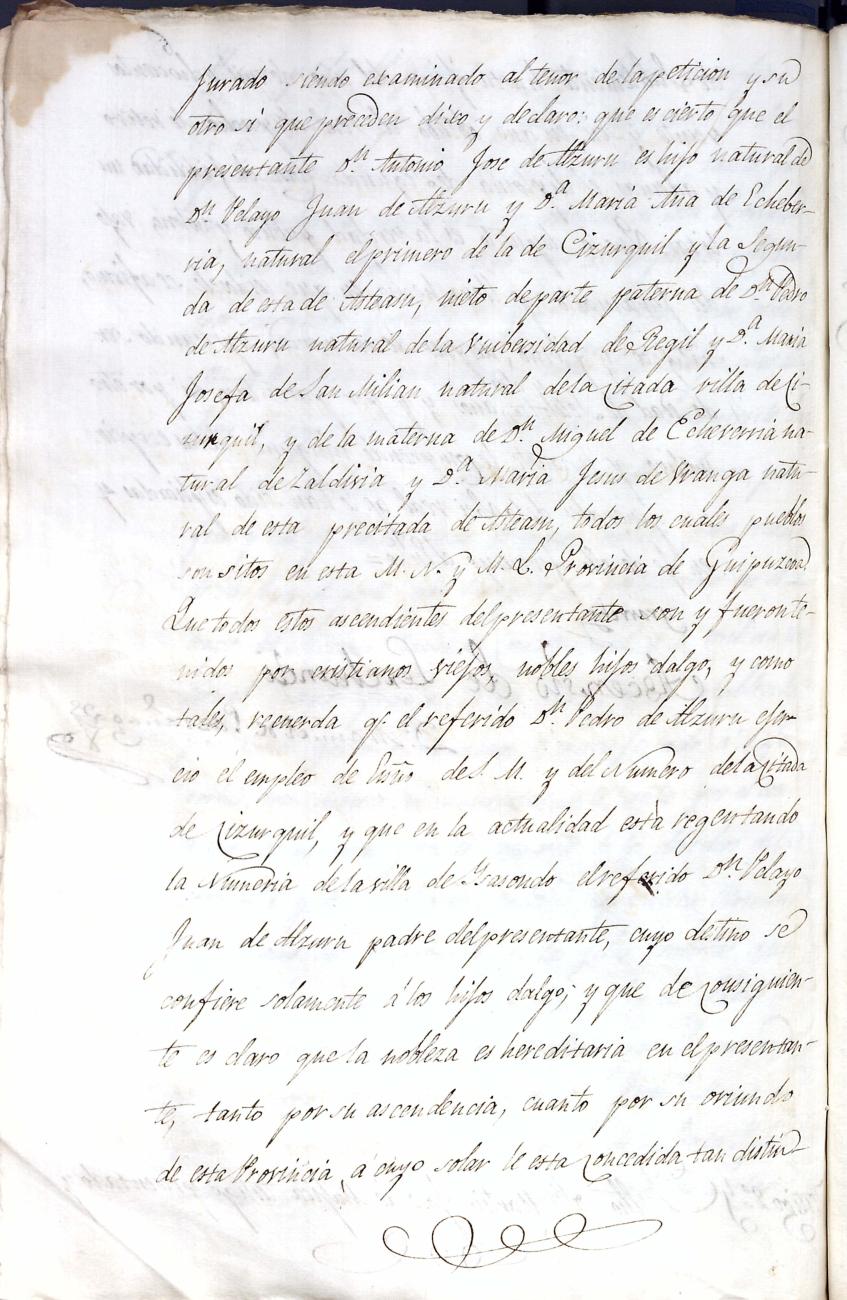 Jurado siendo examinado al tenor de la peticion y su
otro si que preceden dixo y declaro: que es cierto que el
presentante Dn. Antonio Jose de Alzuru es hijo natural de
Dn Pelayo Juan de Alzuru y Da. Maria Ana de Echeber-
ria, natural el primero de la de Cizurquil y la Segun-
da de esta de Asteasu, nieto de parte paterna de Dn. Pedro
de Alzuru natural de la Vniberzidad de Regil y Da. Maria
Josefa de San Milian natural de la Citada villa de Ci-
zurquil, y de la materna de Dn. Miguel de Echeverria na-
tural de Zaldivia y Da. Maria Jesus de Vranga natu-
ral de esta precitada de Asteasu, todos los cuales pueblos
son sitos en esta M. N. y M. L. Provincia de Guipuzcoa.
Que todos estos ascendientes del presentante son y fueron te-
nidos por cristianos viejos, nobles hijos dalgo, y como
tales, recuerda qe. el referido Dn. Pedro de Alzuru ejer-
cio el empleo de Essno de S. M. y del Numero de la Citada
de Cizurquil, y que en la actualidad està regentando
la Numeria de la villa de Ysasondo el referido Dn. Pelayo
Juan de Alzuru padre del presentante, cuyo destino se
confiere solamente á los hijos dalgo; y que de Consiguien-
te es claro que la nobleza es hereditaria en el presentan-
te, tanto por su ascendencia, cuanto por su oriundo
de esta Provincia, a cuyo solar le esta Concedida tan distin-